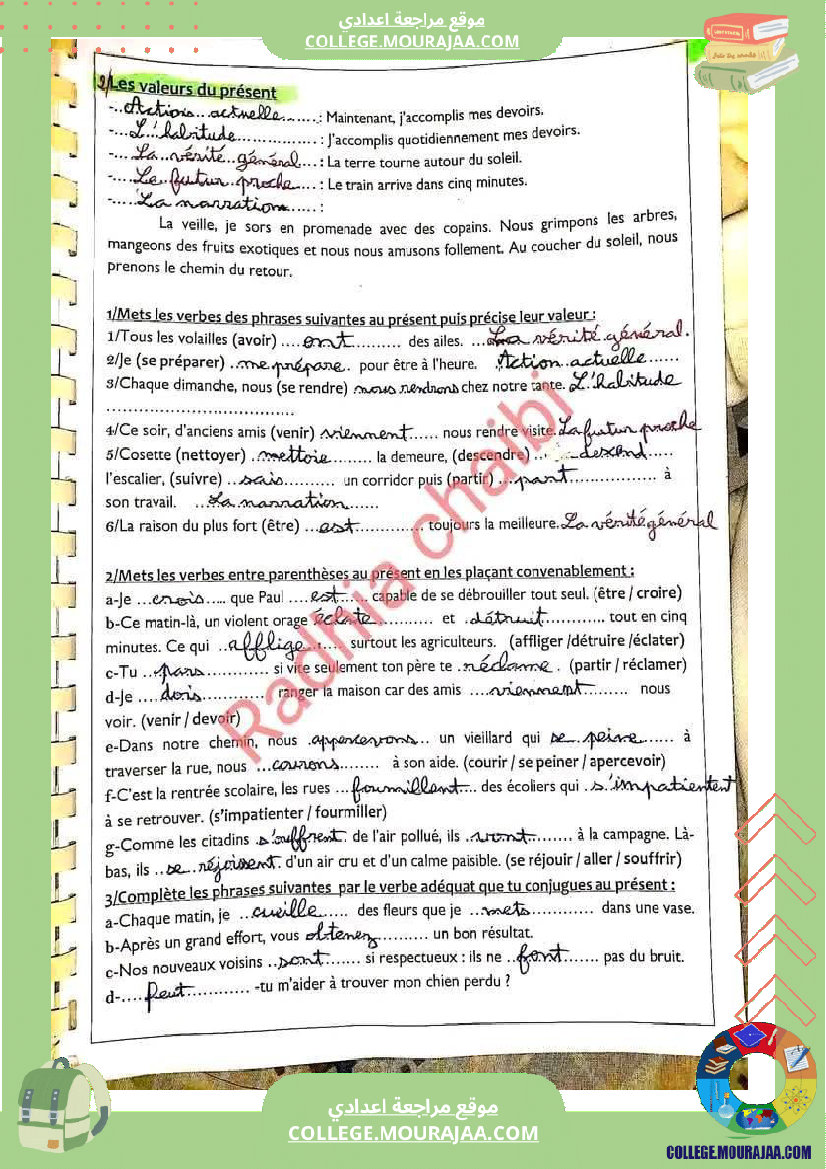 موقع مراجعة اعدادي
COLLEGE.MOURAJAA.COM
2/Les valeurs du présent
-...Actions...actuelle........: Maintenant, j'accomplis mes devoirs.
-...L'habitude................ : J'accomplis quotidiennement mes devoirs.
-....La vérité général....: La terre tourne autour du soleil.
-.....Le futur proche....: Le train arrive dans cinq minutes.
-.....La narration......:
La veille, je sors en promenade avec des copains. Nous grimpons les arbres,
mangeons des fruits exotiques et nous nous amusons follement. Au coucher du soleil, nous
prenons le chemin du retour.
1/Mets les verbes des phrases suivantes au présent puis précise leur valeur :
1/Tous les volailles (avoir) ....ont.......... des ailes. ...La vérité général.
2/Je (se préparer) ..me prépare.. pour être à l'heure. Action actuelle......
3/Chaque dimanche, nous (se rendre) nous rendrons chez notre tante. L'habitude
....................................
4/Ce soir, d'anciens amis (venir) viennent...... nous rendre visite. La futur proche
5/Cosette (nettoyer) ..mettoie........ la demeure, (descendre) ... descend.....
l'escalier, (suivre) ...sais.......... un corridor puis (partir) ...part................. à
son travail. ...La narration......
6/La raison du plus fort (être) ...est.............. toujours la meilleure. La vérité général
2/Mets les verbes entre parenthèses au présent en les plaçant convenablement :
a-Je ...crois..... que Paul ....est..... capable de se débrouiller tout seul. (être / croire)
b-Ce matin-là, un violent orage éclate.......... et .détruit............. tout en cinq
minutes. Ce qui ..afflige....... surtout les agriculteurs. (affliger /détruire /éclater)
c-Tu ..pars............. si vite seulement ton père te .réclame. (partir / réclamer)
d-Je ....dois.............. ranger la maison car des amis ....viennent......... nous
voir. (venir / devoir)
e-Dans notre chemin, nous .appercevons... un vieillard qui se peine....... à
traverser la rue, nous ...courons......... à son aide. (courir / se peiner / apercevoir)
f-C'est la rentrée scolaire, les rues ...fourmillent... des écoliers qui .s'impatientent
à se retrouver. (s'impatienter / fourmiller)
g-Comme les citadins s'ouffrent. de l'air pollué, ils ..vont......... à la campagne. Là-
bas, ils ..se réjoisent. d'un air cru et d'un calme paisible. (se réjouir / aller / souffrir)
3/Complète les phrases suivantes par le verbe adéquat que tu conjugues au présent :
a-Chaque matin, je ...cueille...... des fleurs que je ...mets............. dans une vase.
b-Après un grand effort, vous obtenez........... un bon résultat.
c-Nos nouveaux voisins ..sont....... si respectueux : ils ne ..font....... pas du bruit.
d-....Peut.............. -tu m'aider à trouver mon chien perdu ?
Radhia chaibi
موقع مراجعة اعدادي
COLLEGE.MOURAJAA.COM
COLLEGE.MOURAJAA.COM